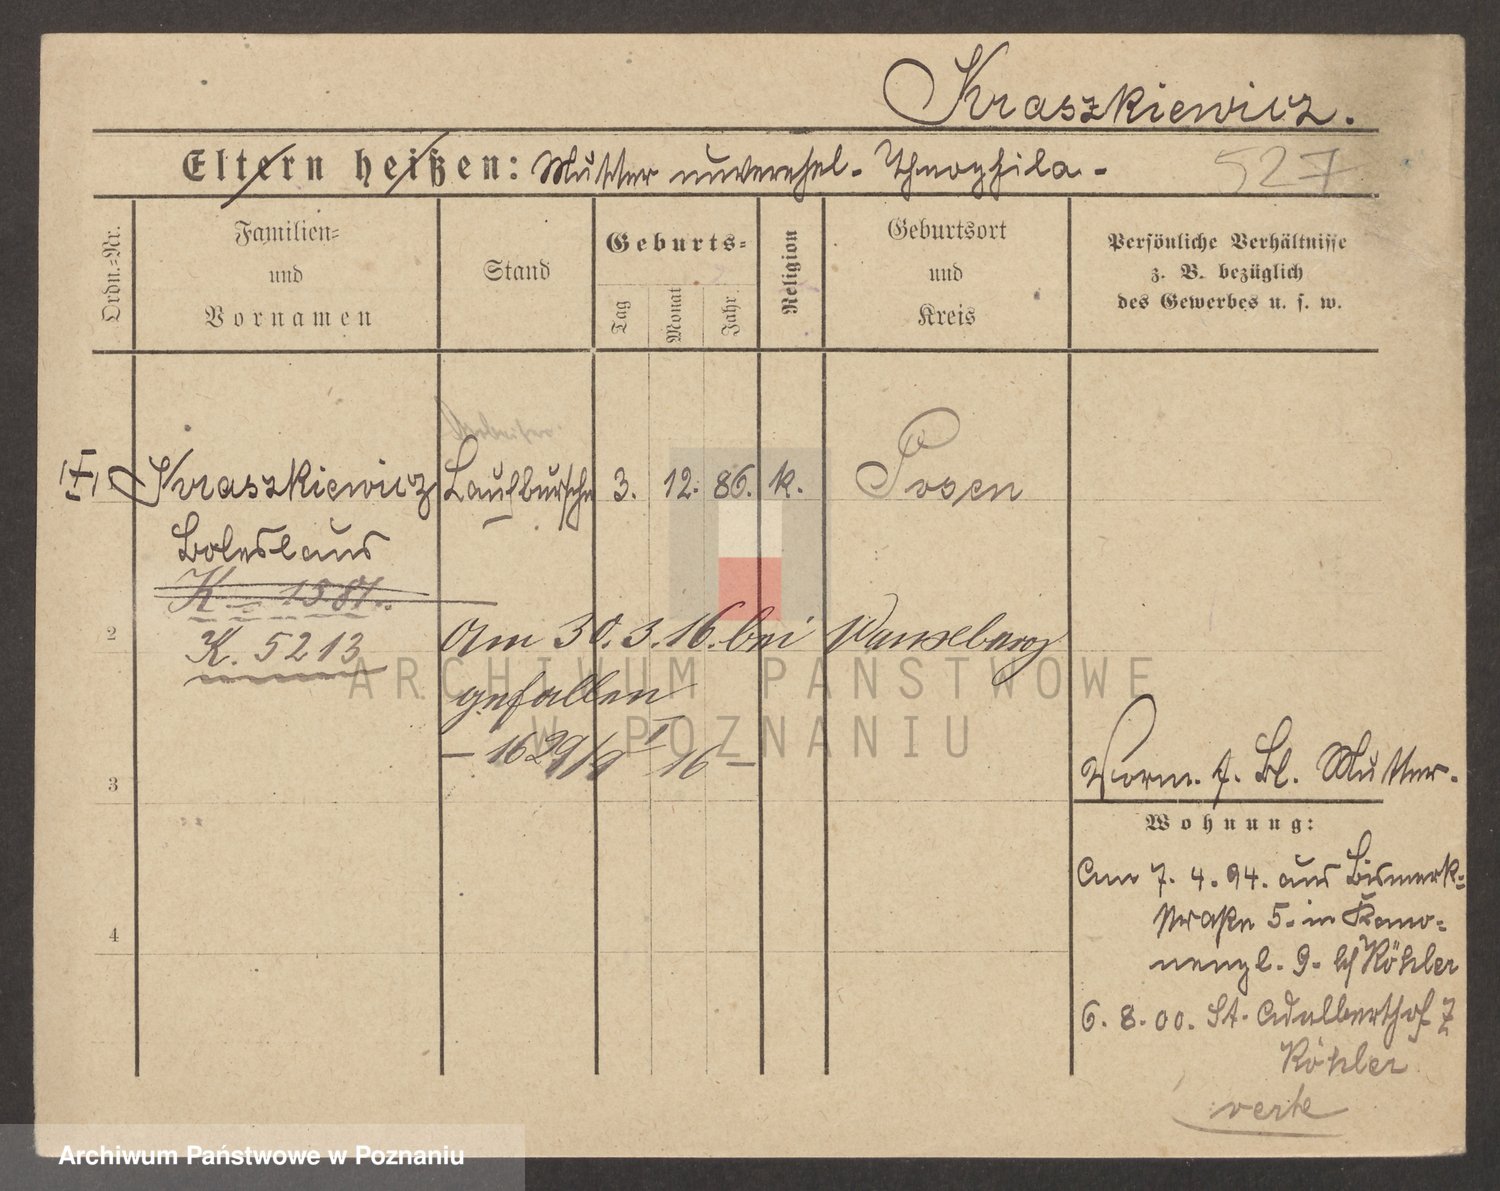 Kraszkiewicz.
Eltern heißen: Mutter unverehel. Theophila.
527
Ordn.-Nr.
Familien-
und
Vornamen
Stand
Geburts-
Tag
Monat
Jahr.
Religion
Geburtsort
und
Kreis
Persönliche Verhältnisse
z. B. bezüglich
des Gewerbes u. s. w.
Arbeiter
Kraszkiewicz Laufbursche 3. 12. 86. k. Posen
Boleslaus
K. 1581.
2
K. 5213
Am 30. 3. 16. bei
gefallen
3
Vorm. f. Bl. Mutter.
Wohnung:
Am 7. 4. 94. aus Bismark-
straße 5. in Kano-
nenpl. 9. Köhler
4
6. 8. 00. St. Adalberthof 7
Köhler
verte
ARCHIWUM PAŃSTWOWE
W POZNANIU
Archiwum Państwowe w Poznaniu